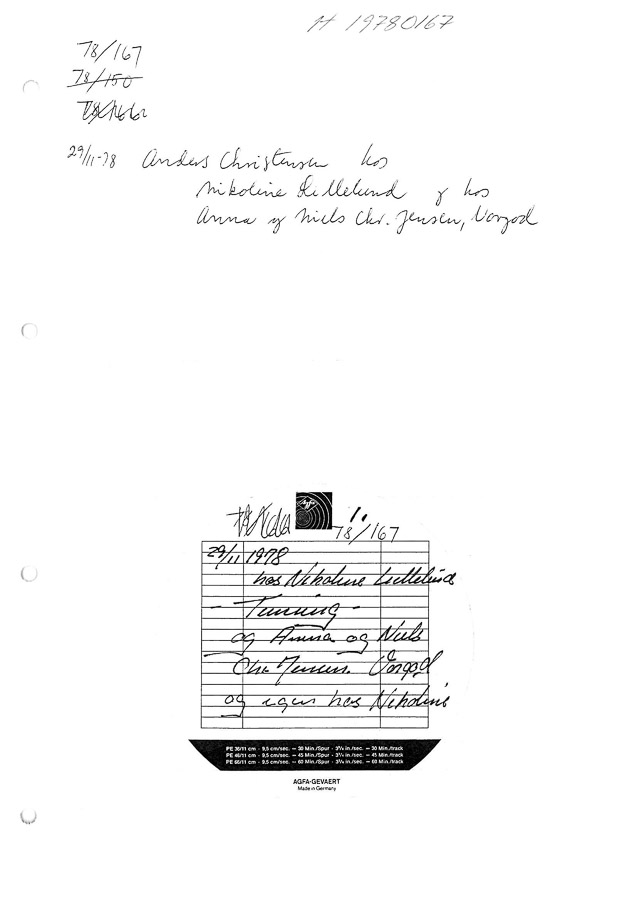 H 19780167
78/167
78/150
29/11-78 Anders Christensen hos
Nikoline Lillelund og hos
Anna og Niels Chr. Jensen, Vorgod
Agfa
1.
78/167
29/11 1978
hos Nikoline Lillelund
- Tunning -
og Anna og Niels
Chr. Jensen. Vorgod
og igen hos Nikoline
PE 36/11 cm - 9,5 cm/sec. — 30 Min./Spur - 3¾ in./sec. — 30 Min./track
PE 46/11 cm - 9,5 cm/sec. — 45 Min./Spur - 3¾ in./sec. — 45 Min./track
PE 66/11 cm - 9,5 cm/sec. — 60 Min./Spur - 3¾ in./sec. — 60 Min./track
AGFA-GEVAERT
Made in Germany